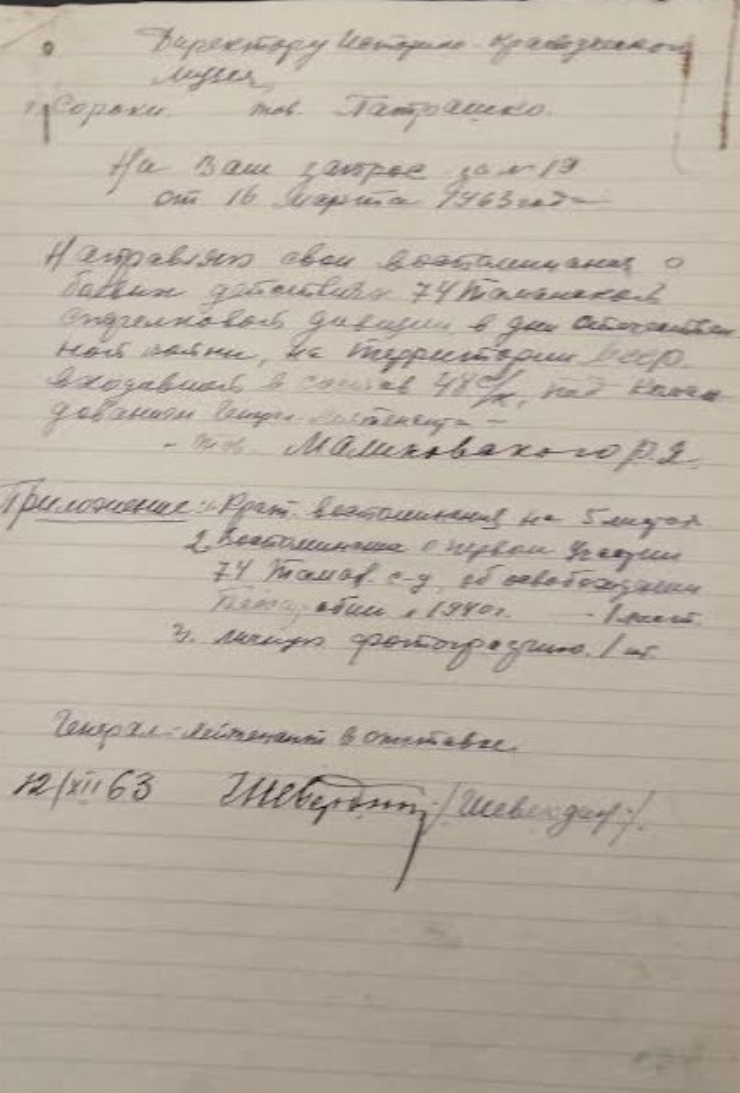 Директору Историко-краеведческого
музея
г. Сороки. тов. Патрашко.
На Ваш запрос за № 19
от 16 марта 1963 года
Направляю свои воспоминания о
боевых действиях 74 Таманской
стрелковой дивизии в дни отечествен-
ной войны, на территории
входившей в состав 48 с/к, под коман
дованием Генерал-лейтенанта -
- тов. Малиновского Р.Я.
Приложение: 1. Крат. воспоминания на 5 листах
2. Воспоминания о первом участии
74 Таман. с-д, об освобождении
1940 г. - 1 лист.
3. личную фотографию. 1 шт.
Генерал-лейтенант в отставке.
12/XII 63 Шевердин /Шевердин/.